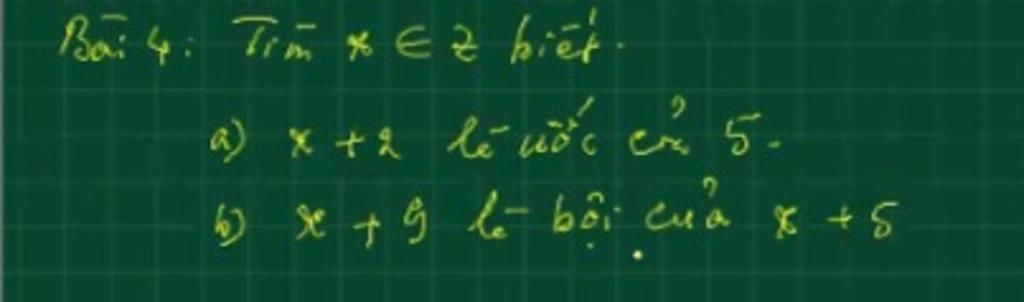 Bài 4: Tìm x ∈ Z biết.
a) x + 2 là ước của 5.
b) x + 9 là bội của x + 5